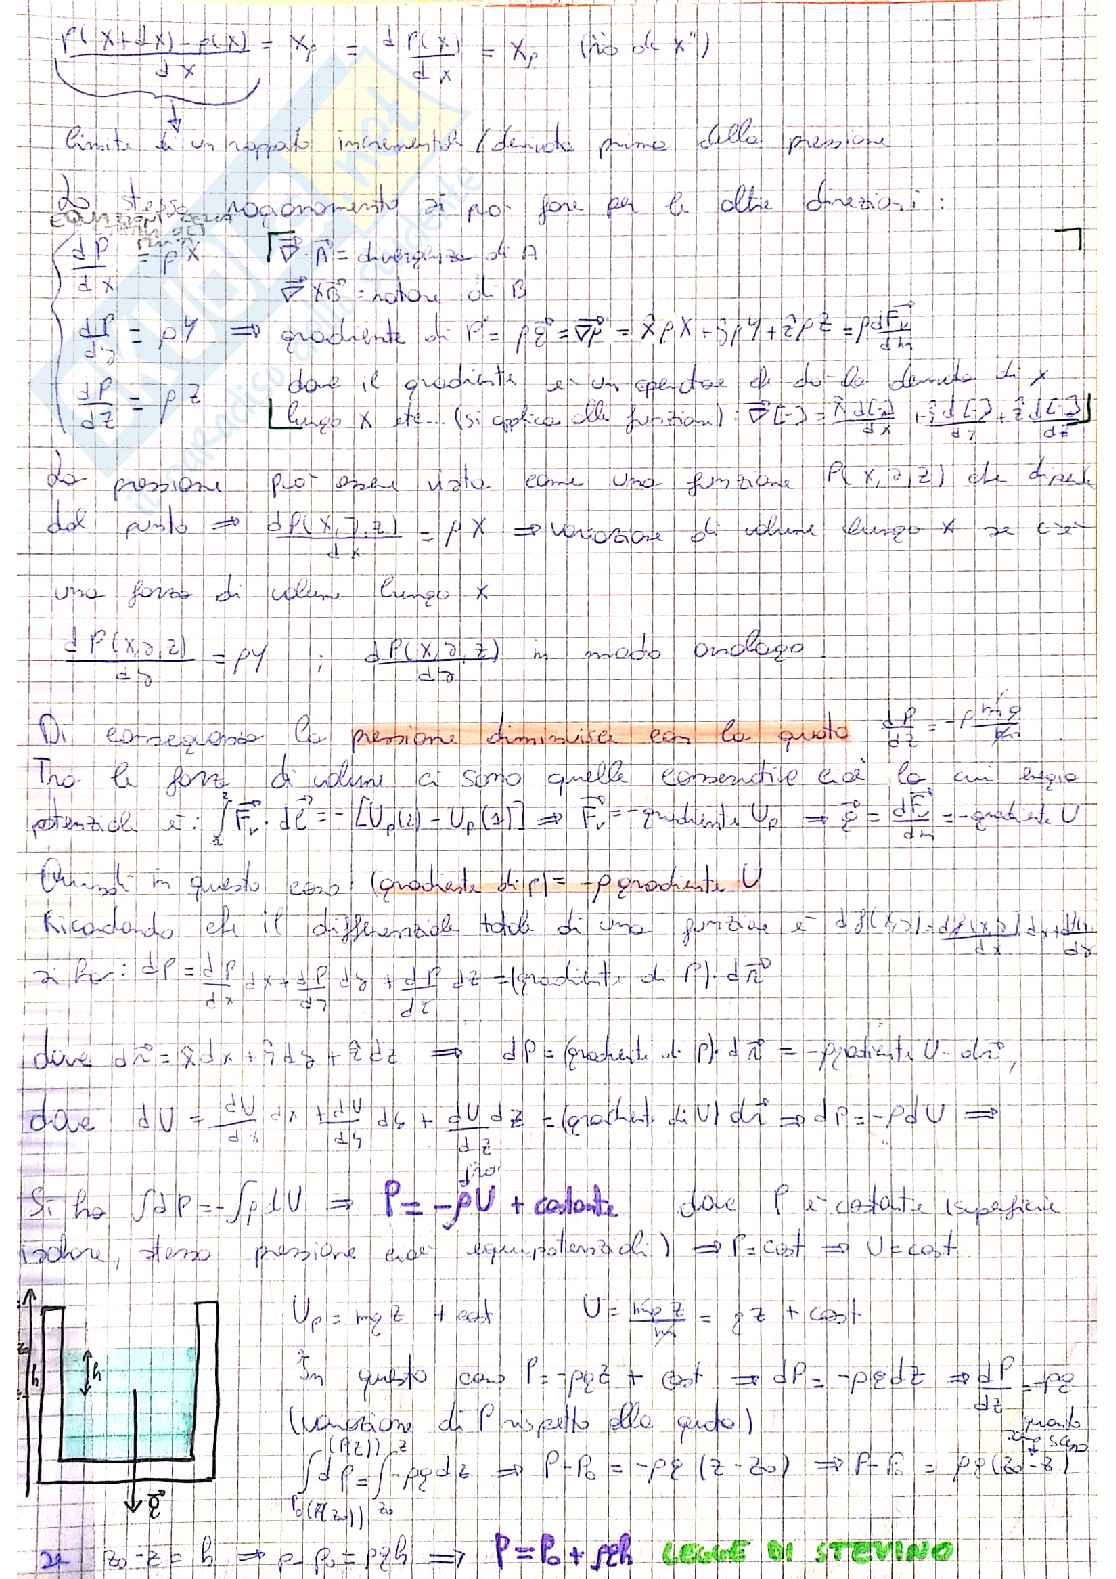 P(x+dx)-p(x)/dx = Xρ = dP(x)/dx = Xρ
limite di un rapporto incrementale / derivata prima della pressione
Lo stesso ragionamento si può fare per le altre direzioni:
dP/dx = ρX ∇·A = divergenza di A
∇×B = rotore di B
dP/dy = ρY ⇒ gradiente di P = ρg = ∇p = x̂ρX + ŷρY + ẑρZ = ρ dFv/dm
dP/dz = ρZ dove il gradiente è un operatore che dà la derivata di x
lungo x etc... (si applica alle funzioni): ∇[-] = x̂ d[-]/dx + ŷ d[-]/dy + ẑ d[-]/dz
La pressione può essere vista come una funzione P(x,y,z) che dipende
dal punto ⇒ dP(x,y,z)/dx = ρX ⇒ variazione di volume lungo x se c'è
una forza di volume lungo x
dP(x,y,z)/dy = ρY ; dP(x,y,z)/dy in modo analogo.
Di conseguenza la pressione diminuisce con la quota dP/dz = -ρ mg/m
Tra le forze di volume ci sono quelle conservative cioè la cui energia
potenziale è: ∫Fv·dl = -[Up(2) - Up(1)] ⇒ Fv = -gradiente Up ⇒ g = dFv/dm = -gradiente U
Quindi in questo caso (gradiente di p) = -ρ gradiente U
Ricordando che il differenziale totale di una funzione è
si ha: dP = dP/dx dx + dP/dy dy + dP/dz dz = (gradiente di P)·dr
dove dr = x̂dx + ŷdy + ẑdz ⇒ dP = (gradiente di P)·dr = -ρ gradiente U·dr,
dove dU = dU/dx dx + dU/dy dy + dU/dz dz = (gradiente di U) dr ⇒ dP = -ρdU ⇒
Si ha ∫dP = -∫ρdU ⇒ P = -ρU + costante dove P è costante (superficie
isobare, stessa pressione cioè equipotenziali) ⇒ P=cost ⇒ U=cost.
Up = mgz + cost U = mgz/m = gz + cost
h
h
In questo caso P = -ρgz + cost ⇒ dP = -ρgdz ⇒ dP/dz = -ρg
(variazione di P rispetto alla quota)
∫dp = ∫-ρgdz ⇒ P-P0 = -ρg (z-z0) ⇒ P-P0 = ρg(z0-z)
P0(P(z0)) z0
g
se z0-z = h ⇒ p-p0 = ρgh ⇒ P = P0 + ρgh LEGGE DI STEVINO